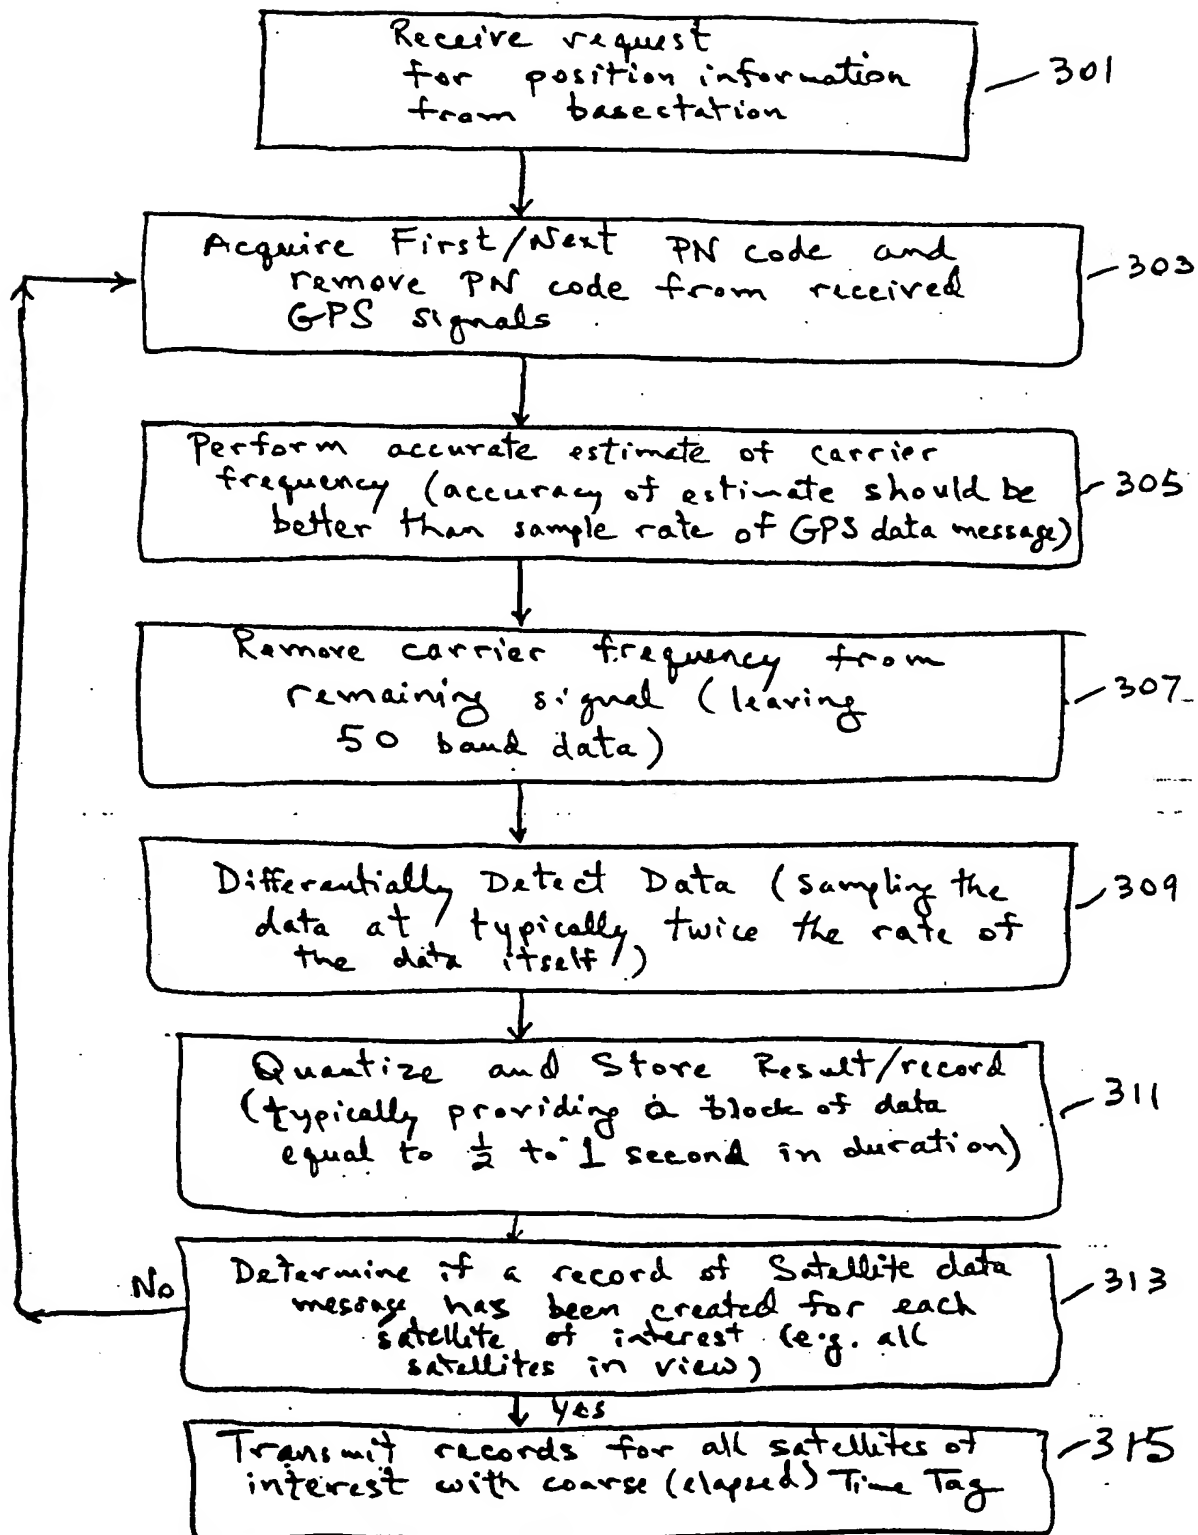 Receive request
for position information
from basestation
301
Acquire First/Next PN code and
remove PN code from received
GPS signals
303
Perform accurate estimate of carrier
frequency (accuracy of estimate should be
better than sample rate of GPS data message)
305
Remove carrier frequency from
remaining signal (leaving
50 baud data)
307
Differentially Detect Data (sampling the
data at typically twice the rate of
the data itself)
309
Quantize and Store Result/record
(typically providing a block of data
equal to ½ to 1 second in duration)
311
Determine if a record of Satellite data
message has been created for each
satellite of interest (e.g. all
satellites in view)
313
No
Yes
Transmit records for all satellites of
interest with coarse (elapsed) Time Tag
315